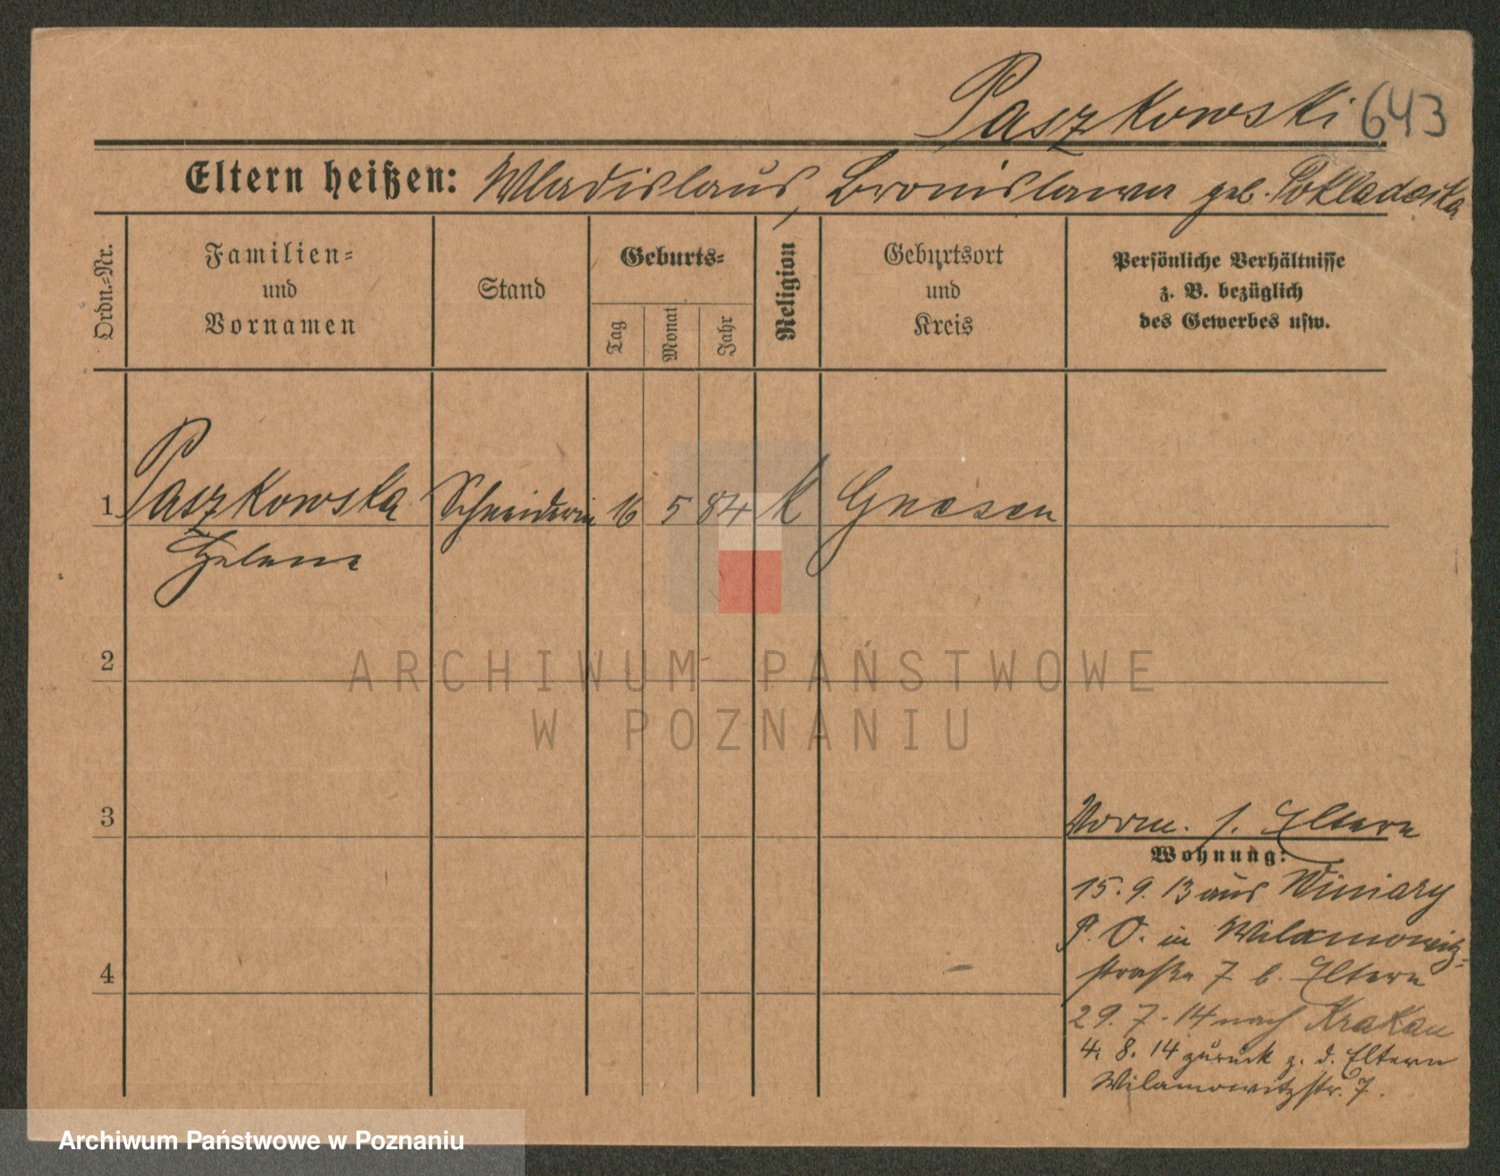 Paszkowski 643
Eltern heißen: Wladislaus, Bronislawa geb. Pokladecka
Ordn.-Nr.
Familien-
und
Vornamen
Stand
Geburts-
Tag
Monat
Jahr
Religion
Geburtsort
und
Kreis
Persönliche Verhältnisse
z. B. bezüglich
des Gewerbes usw.
1 Paszkowska Schneiderin 16 5 84 K Gnesen
Helena
2
ARCHIWUM PAŃSTWOWE
W POZNANIU
3
Vorm. s. Eltern
Wohnung:
15. 9. 13 aus Winiary
P. O. in Wilamowitz-
4
straße 7 b. Eltern
29. 7. 14 nach Krakau
4. 8. 14 zurück z. d. Eltern
Wilamowitzstr. 7.
Archiwum Państwowe w Poznaniu